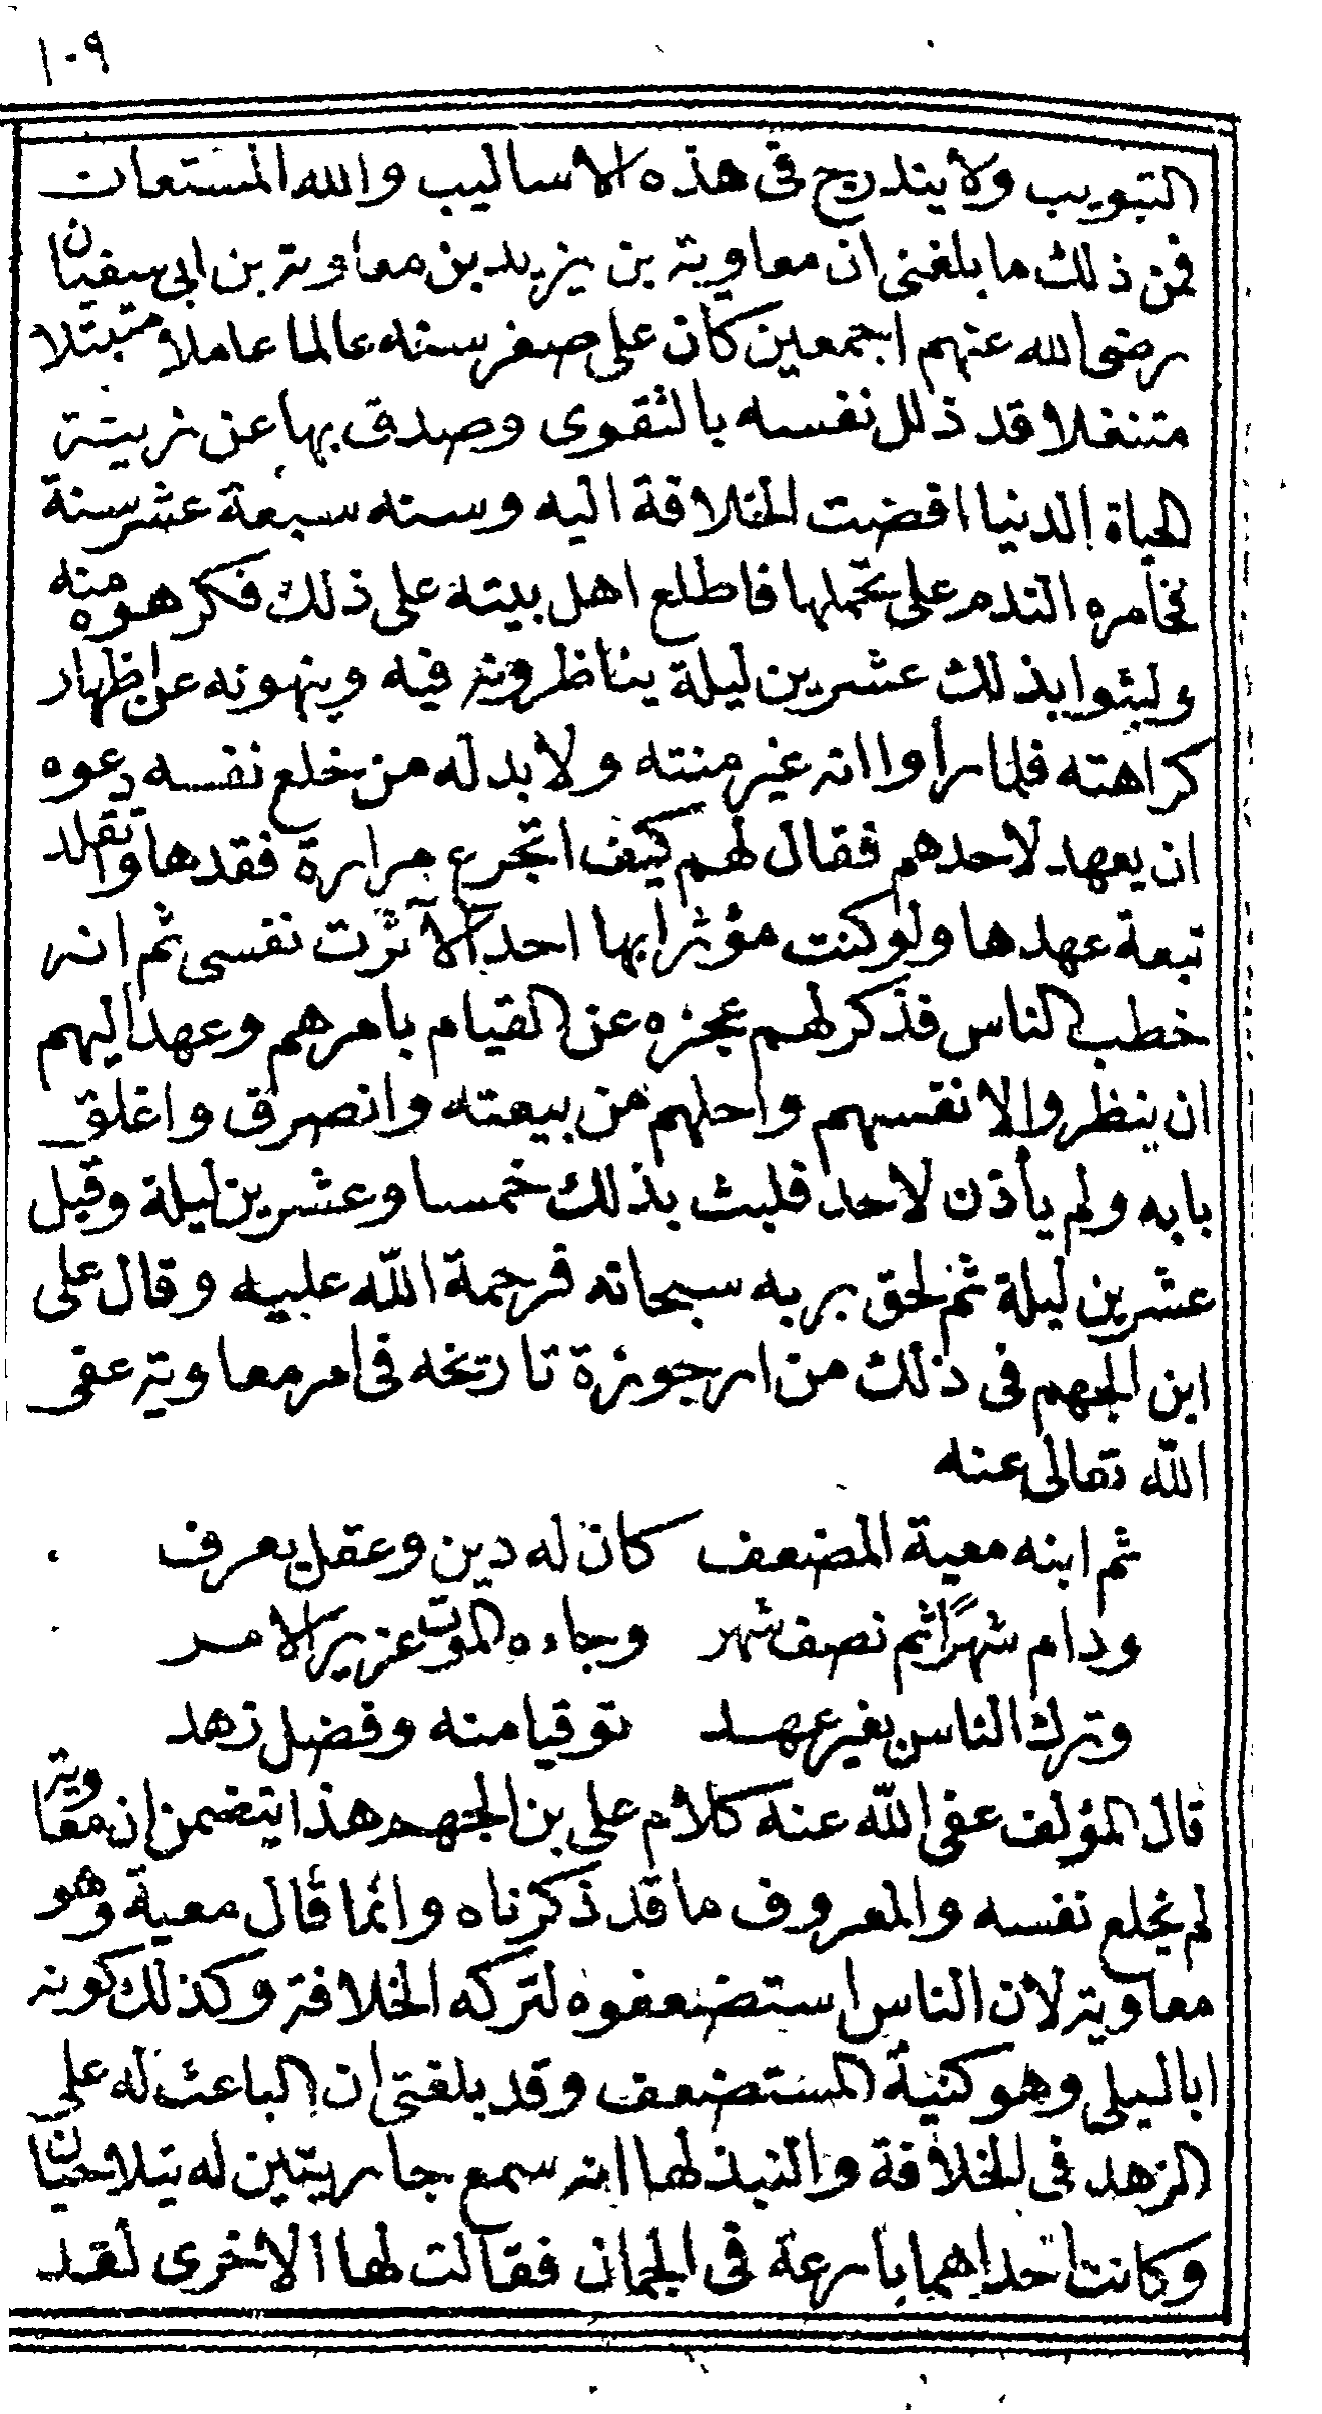 ١٠٩
التبويب ولا يندرج في هذه الاساليب والله المستعان
فمن ذلك ما بلغنى ان معاوية بن يزيد بن معاوية بن ابى سفيان
رضى الله عنهم اجمعين كان على صغر سنه عالما عاملا متبتلا
متنفلا قد ذلل نفسه بالتقوى وصدق بها عن زينة
الحياة الدنيا افضت الخلافة اليه وسنه سبعة عشر سنة
فخامره الندم على تحملها فاطلع اهل بيته على ذلك فكرهوه منه
ولبثوا بذلك عشرين ليلة يناظرونه فيه وينهونه عن اظهار
كراهته فلما راوا انه غير منته ولا بد له من خلع نفسه دعوه
ان يعهد لاحدهم فقال لهم كيف اتجرع مرارة فقدها واتقلد
تبعة عهدها ولو كنت مؤثرا بها احدا لآثرت نفسى ثم انه
خطب الناس فذكر لهم عجزه عن القيام بامرهم وعهد اليهم
ان ينظروا لانفسهم واحلهم من بيعته وانصرف واغلق
بابه ولم يأذن لاحد فلبث بذلك خمسا وعشرين ليلة وقيل
عشرين ليلة ثم لحق بربه سبحانه فرحمة الله عليه وقال على
ابن الجهم فى ذلك من ارجوزة تاريخه فى امر معاوية عفى
الله تعالى عنه
ثم ابنه معية المضعف كان له دين وعقل يعرف
ودام شهرًا ثم نصف شهر وجاءه الموت عزيز الامر
وترك الناس بغير عهد توقيا منه وفضل زهد
قال المؤلف عفى الله عنه كلام على بن الجهم هذا يتضمن ان معاوية
لم يخلع نفسه والمعروف ما قد ذكرناه وانما قال معية وهو
معاوية لان الناس استضعفوه لتركه الخلافة وكذلك كونه
ابا ليلى وهو كنية المستضعف وقد بلغنى ان الباعث له على
الزهد فى الخلافة والنبذ لها انه سمع جاريتين له يتلاحيان
وكانت احداهما بارعة فى الجمال فقالت لها الاخرى لقد